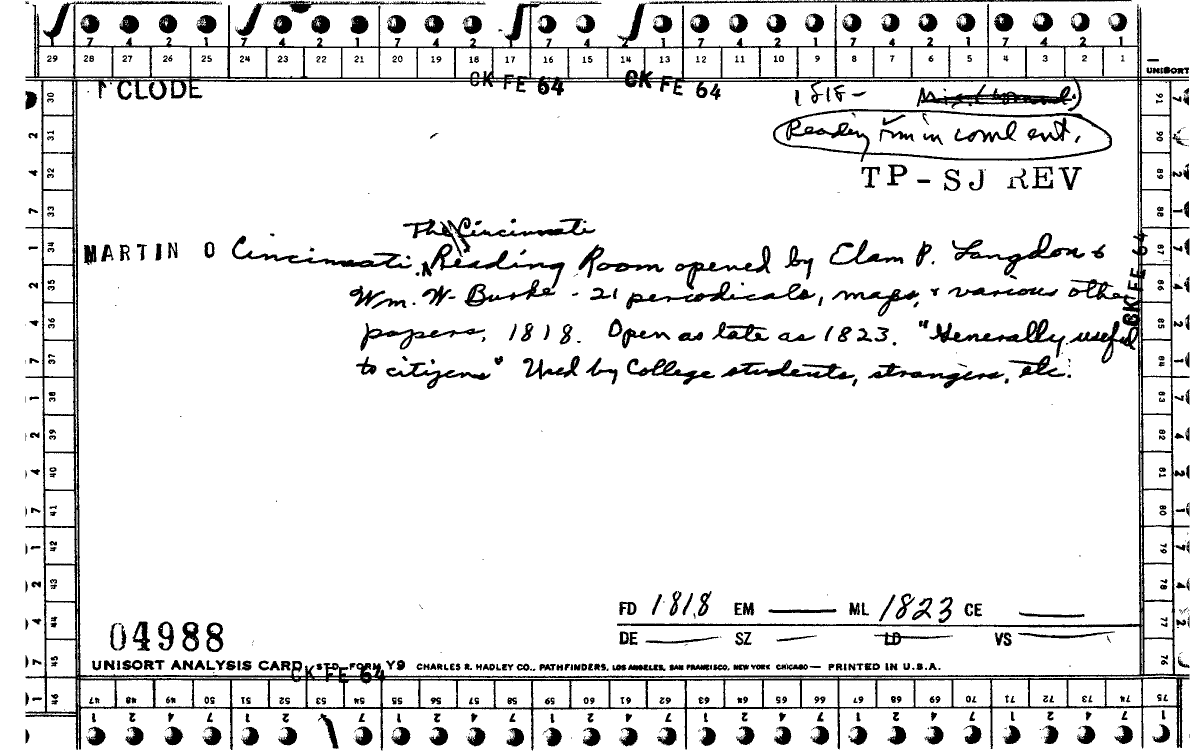 7 4 2 1 7 4 2 1 7 4 2 1 7 4 2 1 7 4 2 1 7 4 2 1 7 4 2 1
29 28 27 26 25 24 23 22 21 20 19 18 17 16 15 14 13 12 11 10 9 8 7 6 5 4 3 2 1
UNISORT
CLODE CK FE 64 CK FE 64 1818-
Reading rm in coml ent.
TP-SJ REV
The Cincinnati
MARTIN O Cincinnati. Reading Room opened by Elam P. Langdon &
Wm. W. Burke - 21 periodicals, maps, & various other
papers, 1818. Open as late as 1823. "Generally useful
to citizens" Used by College students, strangers, etc.
CK FE 64
FD 1818 EM ML 1823 CE
DE SZ LD VS
04988
UNISORT ANALYSIS CARD STD. FORM Y9 CHARLES R. HADLEY CO., PATHFINDERS, LOS ANGELES, SAN FRANCISCO, NEW YORK CHICAGO — PRINTED IN U.S.A.
CK FE 64
30 31 32 33 34 35 36 37 38 39 40 41 42 43 44 45 46
47 48 49 50 51 52 53 54 55 56 57 58 59 60 61 62 63 64 65 66 67 68 69 70 71 72 73 74 75
91 90 89 88 87 86 85 84 83 82 81 80 79 78 77 76